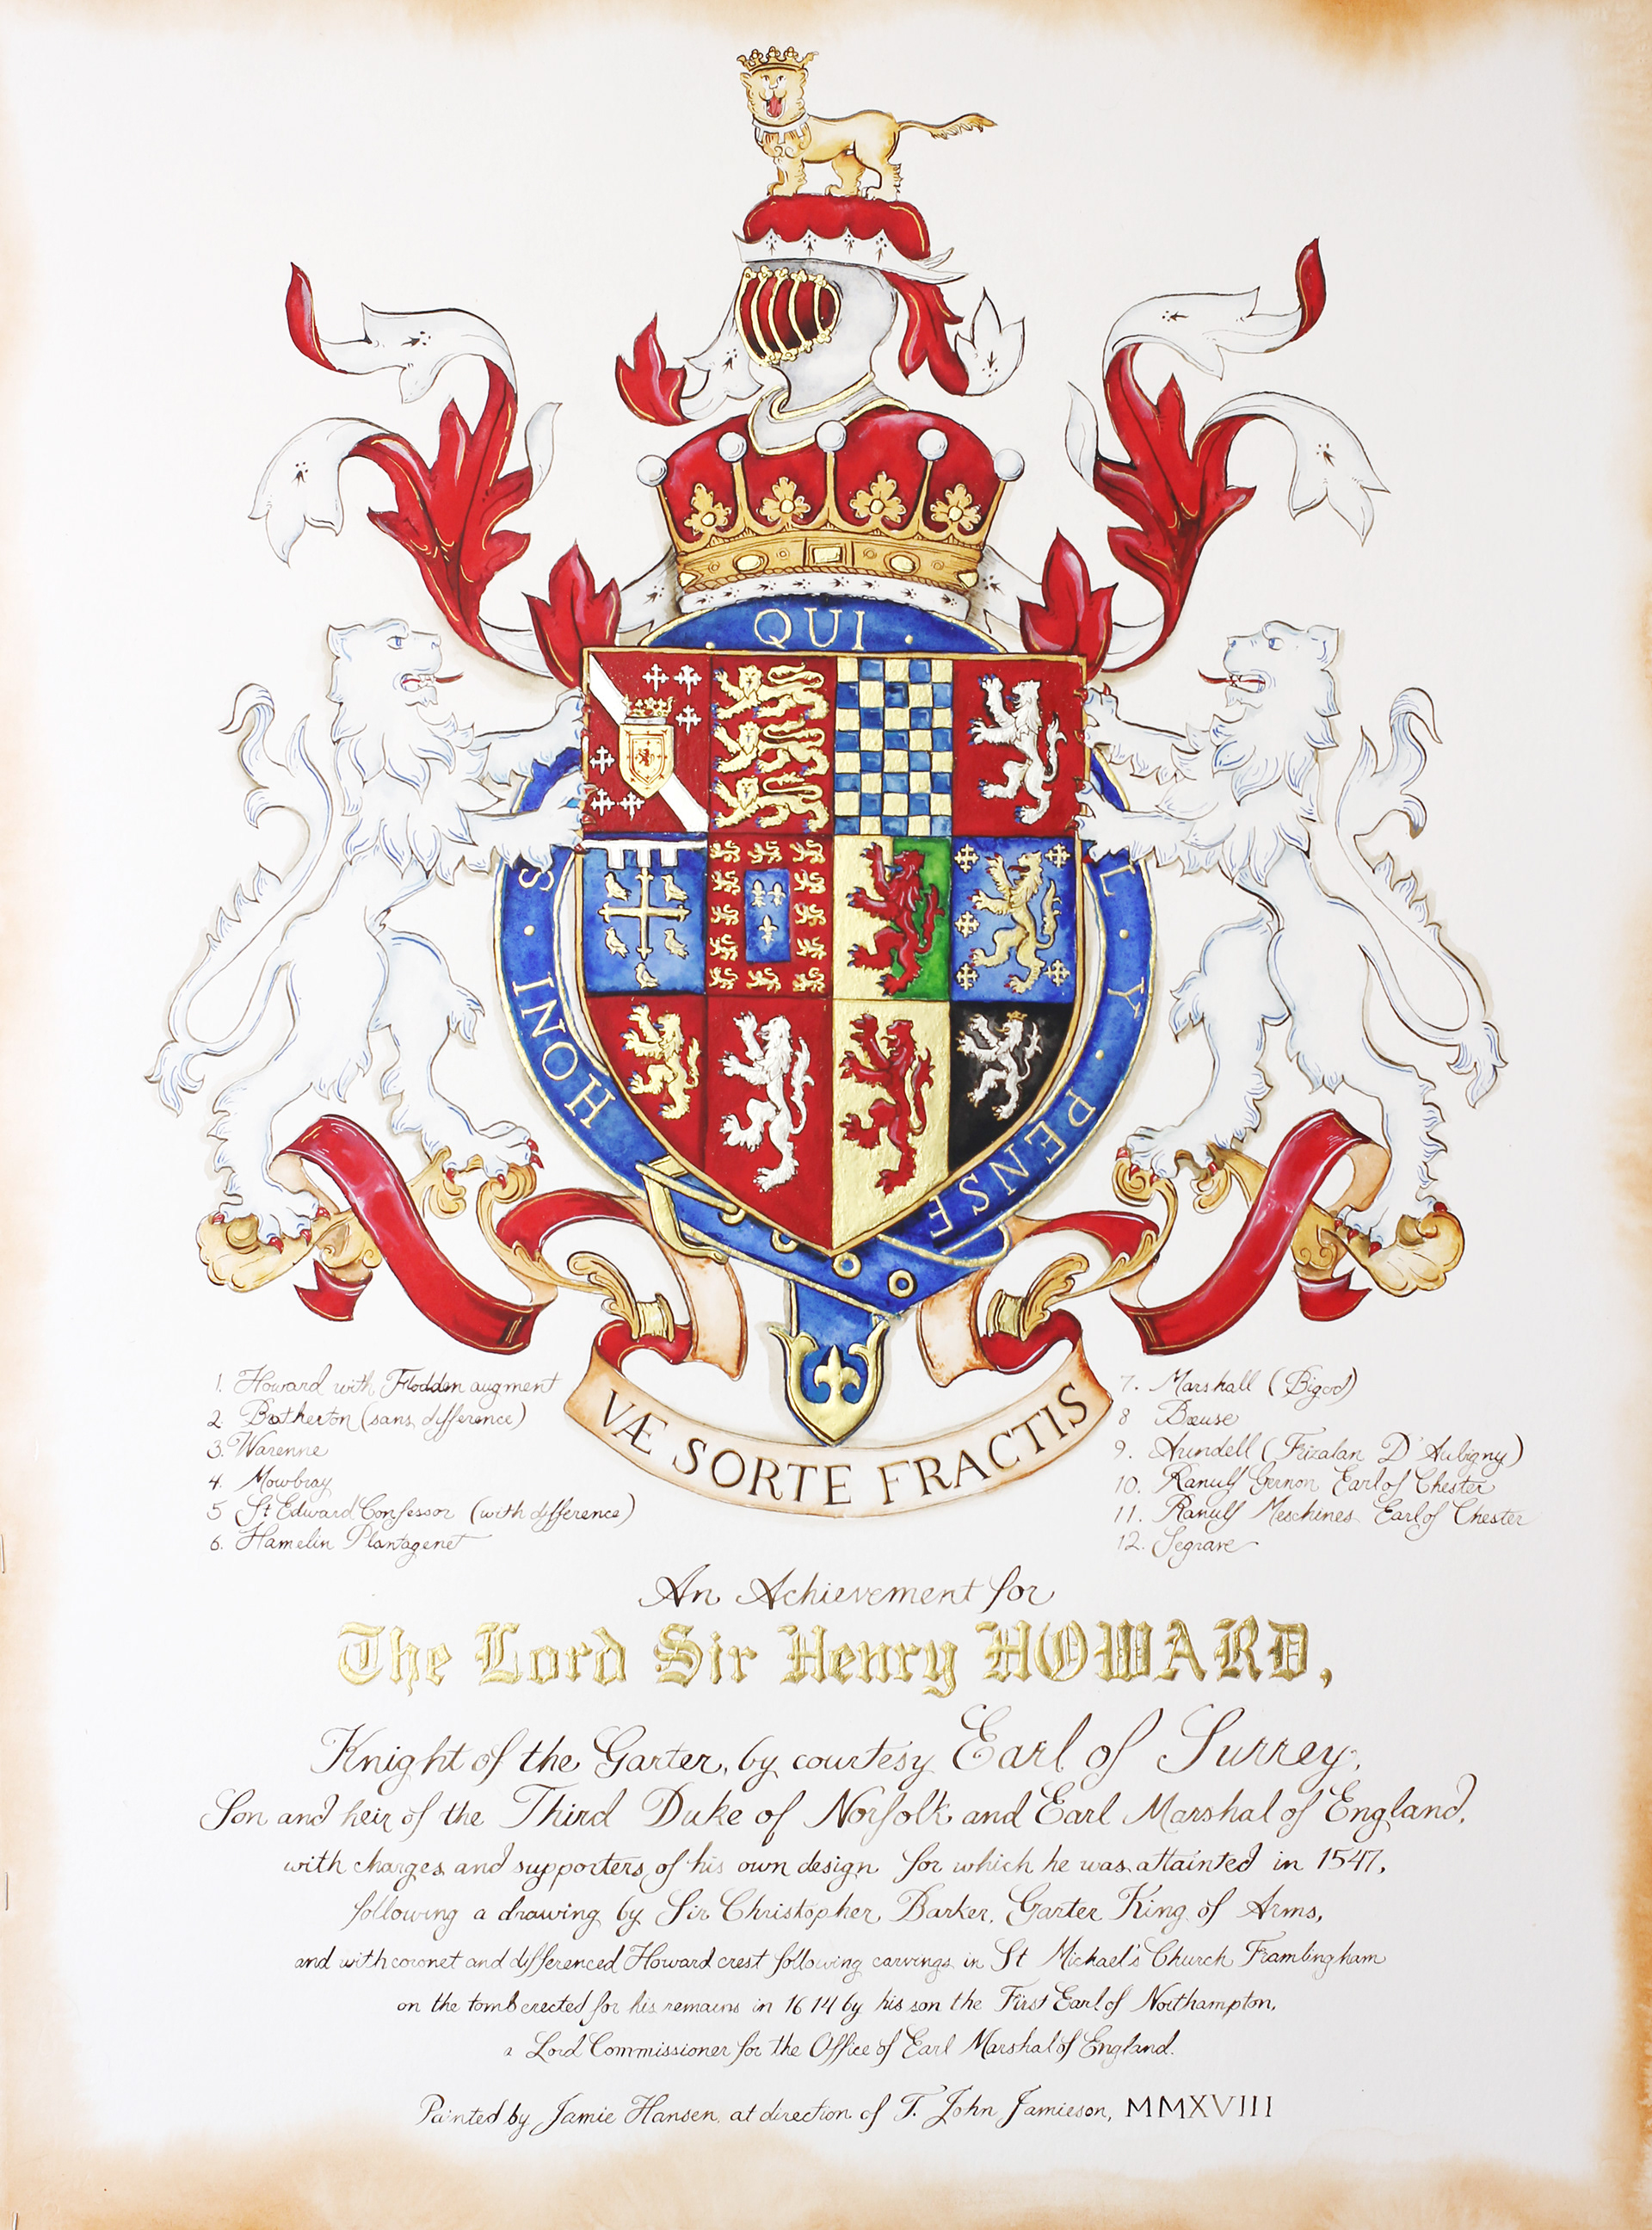 QUI
S · HONI
L · Y · PENSE
VÆ SORTE FRACTIS
1. Howard with Flodden augment
2 Brotherton (sans difference)
3. Warenne
4. Mowbray
5 St Edward Confessor (with difference)
6. Hamelin Plantagenet
7. Marshall (Bigod)
8
9. Arundell (Fitzalan D'Aubigny)
10. Ranulf Gernon Earl of Chester
11. Ranulf Meschines Earl of Chester
12. Segrave
An Achievement for
The Lord Sir Henry HOWARD,
Knight of the Garter, by courtesy Earl of Surrey,
Son and heir of the Third Duke of Norfolk and Earl Marshal of England,
with charges and supporters of his own design for which he was attainted in 1547,
following a drawing by Sir Christopher Barker, Garter King of Arms,
and with coronet and differenced Howard crest following carvings in St Michael's Church Framlingham
on the tomb erected for his remains in 1614 by his son the First Earl of Northampton,
a Lord Commissioner for the Office of Earl Marshal of England.
Painted by Jamie Hansen, at direction of T. John Jamieson, MMXVIII